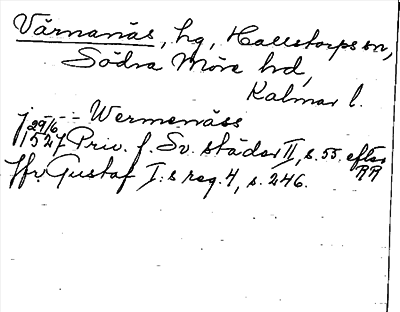 Värnanäs, hg, Hallstorps sn,
Södra Möre hd,
Kalmar l.
j -- Wermenäss
29/6 1527 Priv. f. Sv. städer II, s. 55. efter RR
Jfr Gustaf I:s reg. 4, s. 246.